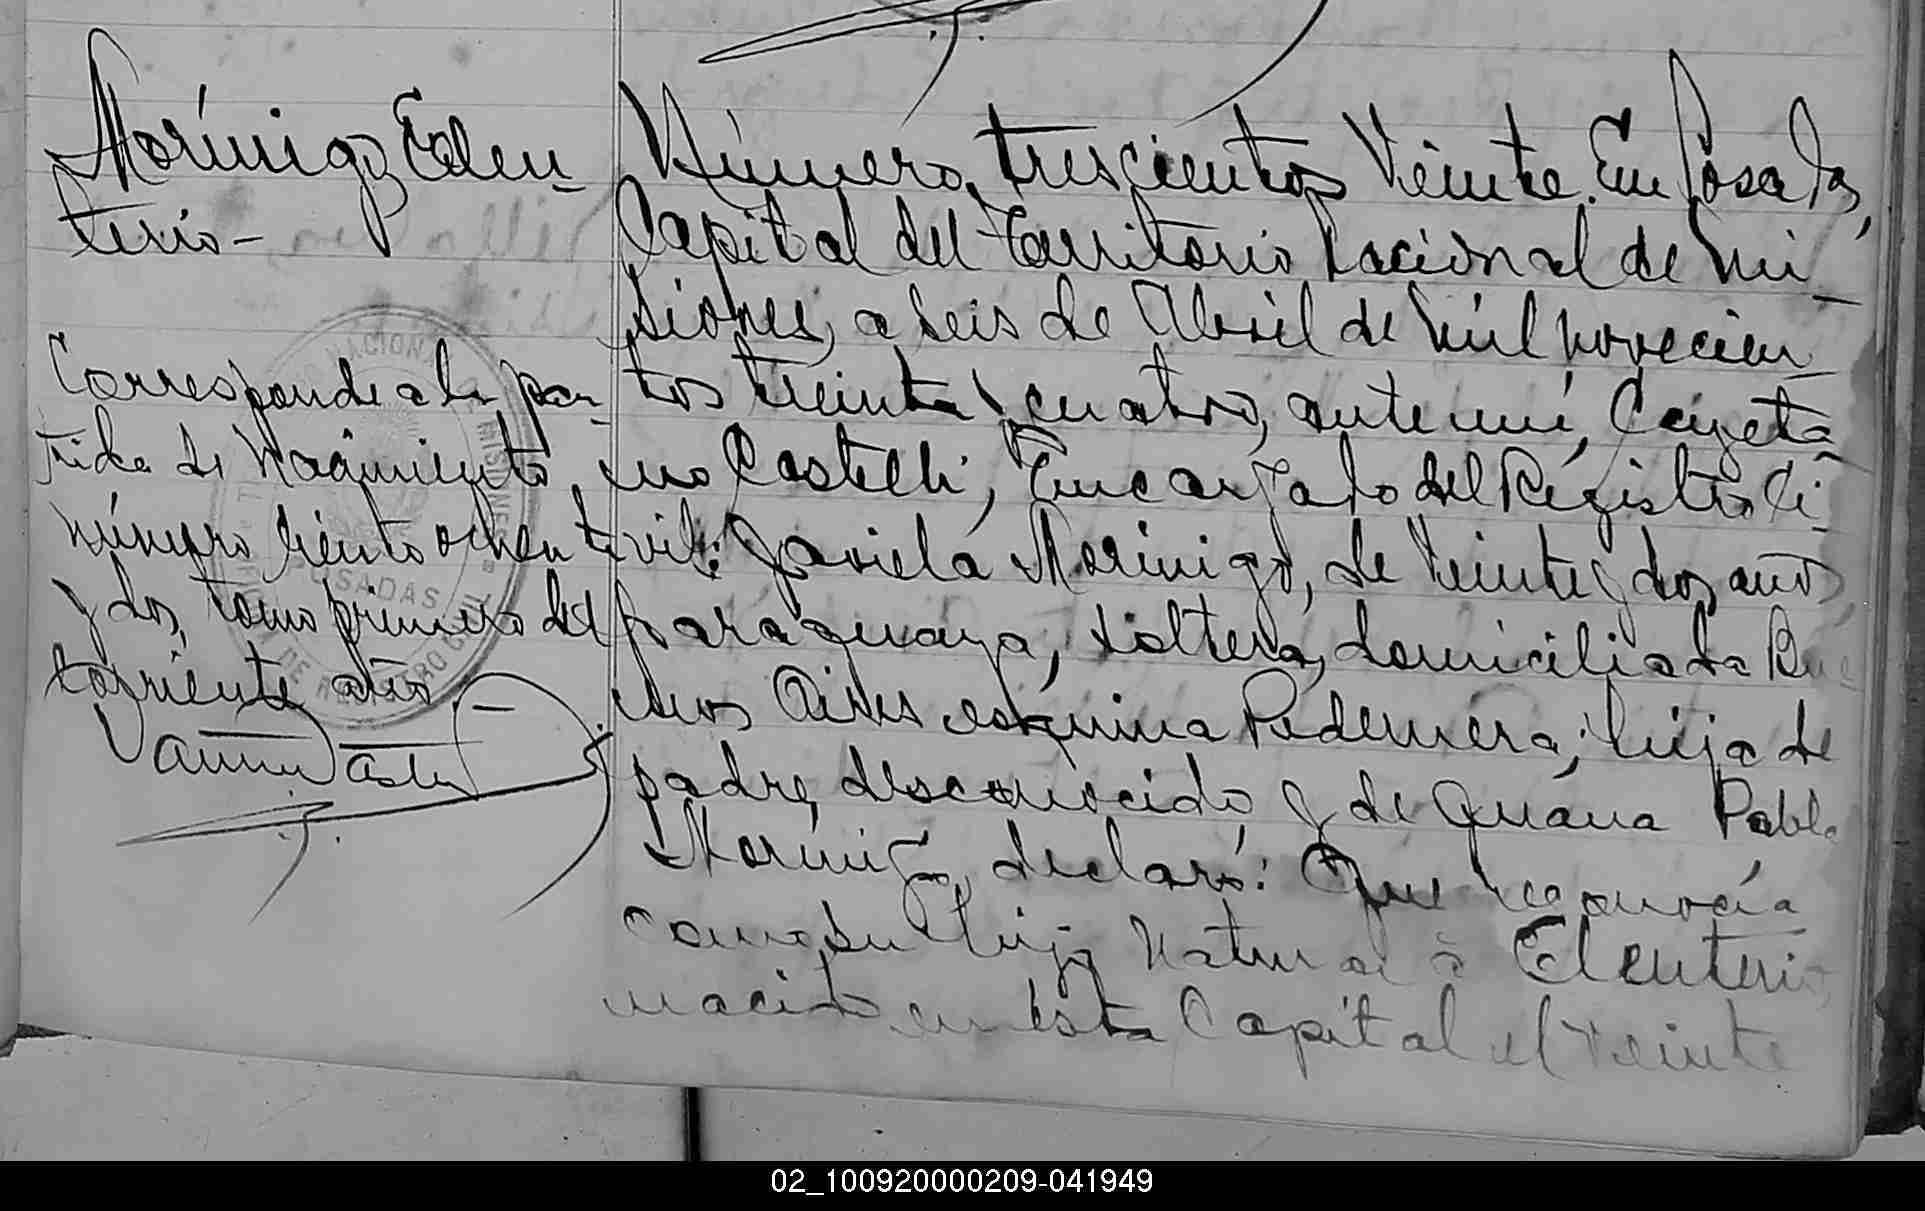 Morínigo Eleu-
terio-
Corresponde a la par-
tida de Nacimiento
número ciento ochenta
y dos, tomo primero del
corriente año
Número trescientos veinte. En Posadas,
Capital del Territorio Nacional de Mi-
siones, a seis de Abril de mil novecien-
tos treinta y cuatro, ante mí, Cayeta-
no Castelli, Encargado del Registro Ci-
vil: Gaviela Morinigo, de veinte y dos años,
paraguaya, soltera, domiciliada Bue
nos Aires esquina Pedernera; hija de
padre desconocido y de Juana Pabla
Morinigo, declaró: Que reconocía
como su hijo Natural a Eleuterio
nacido en esta Capital el veinte
REGISTRO CIVIL
POSADAS
02_100920000209-041949